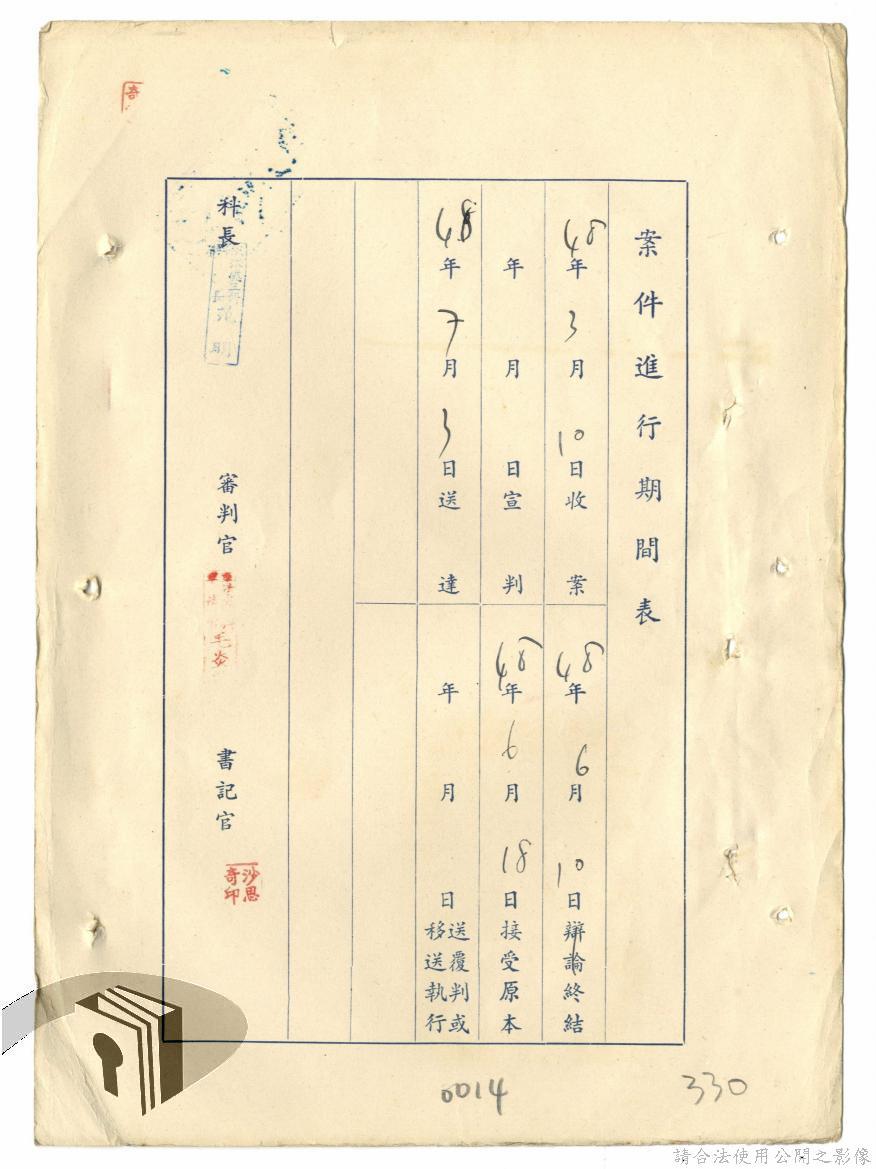 案件進行期間表
48年3月10日收案
48年6月10日辯論終結
年月日宣判
48年6月18日接受原本
48年7月3日送達
年月日送覆判或移送執行
科長
審判官
毛炎
書記官
沙思奇印
奇
0014
330
請合法使用公開之影像